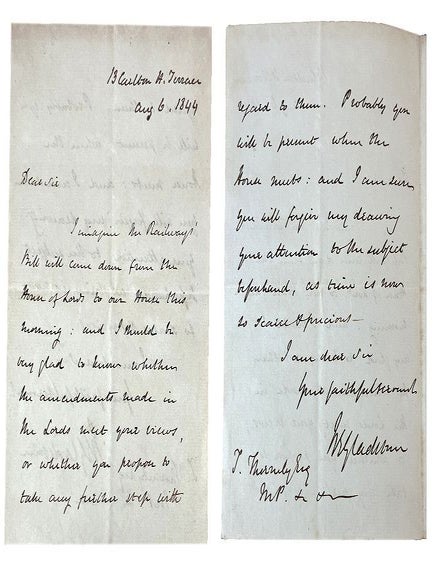 13 Carlton H. Terrace
Aug 6. 1844
Dear Sir
I imagine the Railways'
Bill will come down from the
House of Lords to our House this
morning: and I should be
very glad to know whether
the amendments made in
the Lords meet your views,
or whether you propose to
take any further step with
regard to them. Probably you
will be present when the
House meets: and I am sure
you will forgive my drawing
your attention to the subject
beforehand, as time is now
so scarce & precious—
I am dear Sir
Your faithful servant
WEGladstone
T. Thornely Esq
MP. &c &c